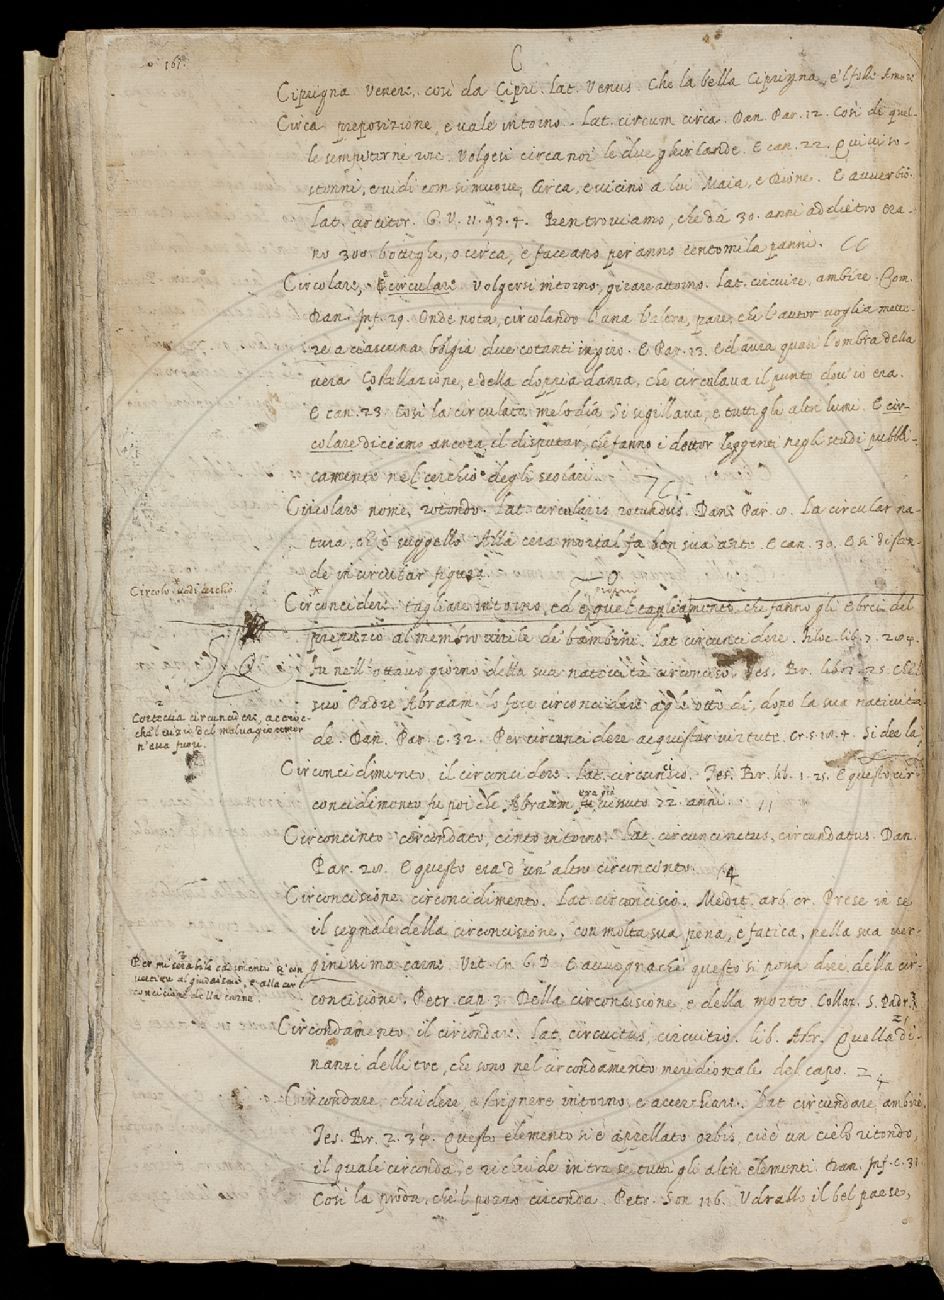 167.
C
Ciprigna Venere, così da Cipri. Lat. Venus. Che la bella Ciprigna, e'l folle Amore
Circa preposizione, e vale intorno. Lat. circum circa. Dan. Par. 12. Così di quel-
le sempiterne rose Volgesi circa noi le due ghirlande. E can. 22. Quivi so-
stenni, e vidi com si muove, Circa, e vicino a lui Maia, e Dione. E avverbio.
Lat. circiter. G. V. 11. 93. 4. Ren troviamo, che da 30. anni addietro era-
no 300. botteghe, o circa, e faceano per anno centomila panni.
Circolare, e circulare Volgersi intorno, girare attorno. Lat. circuire, ambire. Com.
Dan. Inf. 29. Onde nota, circolando l'una l'altra, pare, che l'autor voglia mette-
re a ciascuna bolgia due cotanti in giro. E Par. 13. Ed avea quasi l'ombra della
vera Costellazione, e della doppia danza, che circulava il punto dov'io era.
E can. 23. Così la circulata melodia Si sigillava, e tutti gli altri lumi. E cir-
colare diciamo ancora il disputar, che fanno i dottor leggenti negli studi pubbli-
camente nel cerchio degli scolari.
Circolare nome, rotondo. Lat. circularis rotundus. Dan. Par. 8. La circular na-
tura, ch'è suggello Alla cera mortal fa ben sua arte. E can. 30. E si disten-
de in circular figura
Circolo vedi cerchio.
Circoncidere tagliare intorno, ed è quel tagliamento, che fanno gli Ebrei del
prepuzio al membro virile de' bambini. Lat. circuncidere.
fu nell'ottavo giorno della sua natività circonciso. Tes. Br. lib. 1. 25. E'l
suo Padre Abraam lo fece circoncidere agli otto dì, dopo la sua nativita-
de. Dan. Par. c. 32. Per circuncidere acquistar virtute. Cr. 5. 18. 4. Si dee la
corteccia circuncidere, acciòc-
che l'umor del malvagio umor
n'esca fuori.
Circoncidimento, il circoncidere. Lat. circuncisio. Tes. Br. lib. 1. 25. E questo cir-
concidimento fu poi che Abraam era già vivuto 72. anni.
Circoncinto circondato, cinto intorno. Lat. circuncinctus, circundatus. Dan.
Par. 28. E questo era d'un altro circoncinto.
Circoncisione circoncidimento. Lat. circoncisio. Medit. arb. cr. Prese in se
il segnale della circoncisione, con molta sua pena, e fatica, nella sua ver-
ginissima carne. Vit. Cr. G. D. E avvegnachè questo si pona dire della cir-
concisione. Petr. cap. 3. Della circoncisione, e della morte. Collaz. S. Padr.
Per miserabile cadimento si con-
vertiro al giudaismo, e alla cir-
concisione della carne.
Circondamento, il circondare. Lat. circuitus, circuitio. lib. Astr. Quella di-
nanzi delle tre, che sono nel circondamento meridionale del capo.
Circondare, chiudere e strignere intorno, e accerchiare. Lat. circundare, ambire.
Tes. Br. 2. 34. Questo elemento si è appellato orbis, cioè un cielo ritondo,
il quale circonda, e richiude intra se tutti gli altri elementi. Dan. Inf. c. 31
Così la proda, che'l pozzo circonda. Petr. Son. 116. Udrallo il bel paese,